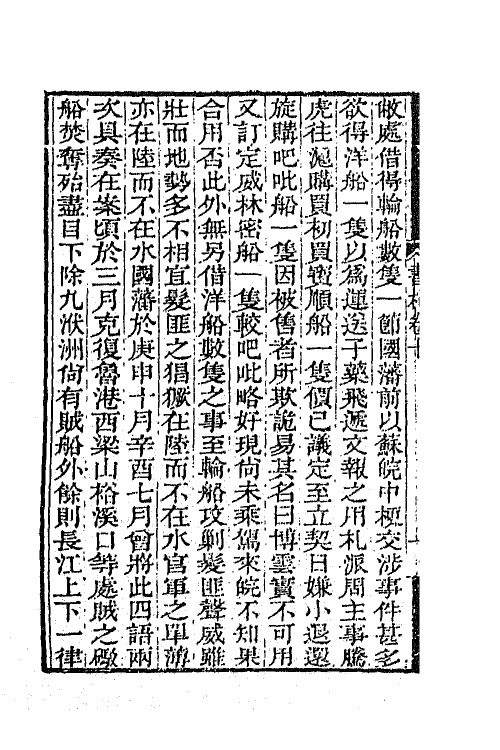 敝處借得輪船數隻一節國藩前以蘇皖中梗交涉事件甚多
欲得洋船一隻以爲運送子藥飛遞文報之用札派周主事騰
虎往滬購買初買寶順船一隻價已議定至立契日嫌小退還
旋購吧吡船一隻因被售者所欺詭易其名曰博雲實不可用
又訂定威林密船一隻較吧吡略好現尙未乘駕來皖不知果
合用否此外無另借洋船數隻之事至輪船攻剿髮匪聲威雖
壯而地勢多不相宜髮匪之猖獗在陸而不在水官軍之單薄
亦在陸而不在水國藩於庚申十月辛酉七月會將此四語兩
次具奏在案頃於三月克復魯港西梁山裕溪口等處賊之礮
船焚奪殆盡目下除九洑洲尙有賊船外餘則長江上下一律